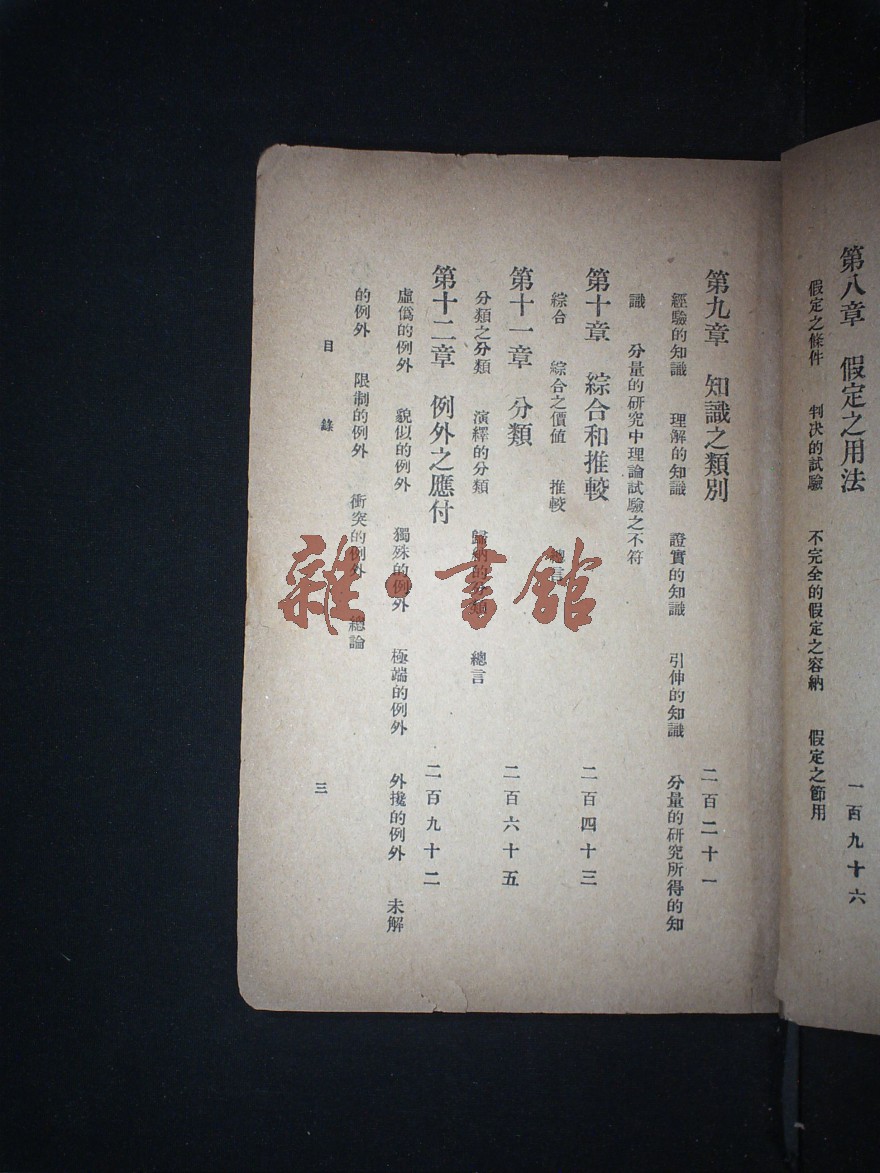 第八章　假定之用法　一百九十六
假定之條件　判決的試驗　不完全的假定之容納　假定之節用
第九章　知識之類別　二百二十一
經驗的知識　理解的知識　證實的知識　引伸的知識　分量的研究所得的知
識　分量的研究中理論試驗之不符
第十章　綜合和推較　二百四十三
綜合　綜合之價値　推較　總言
第十一章　分類　二百六十五
分類之分類　演繹的分類　歸納的分類　總言
第十二章　例外之應付　二百九十二
虛僞的例外　貌似的例外　獨殊的例外　極端的例外　外攙的例外　未解
的例外　限制的例外　衝突的例外　總論
目錄　三
雜·書館